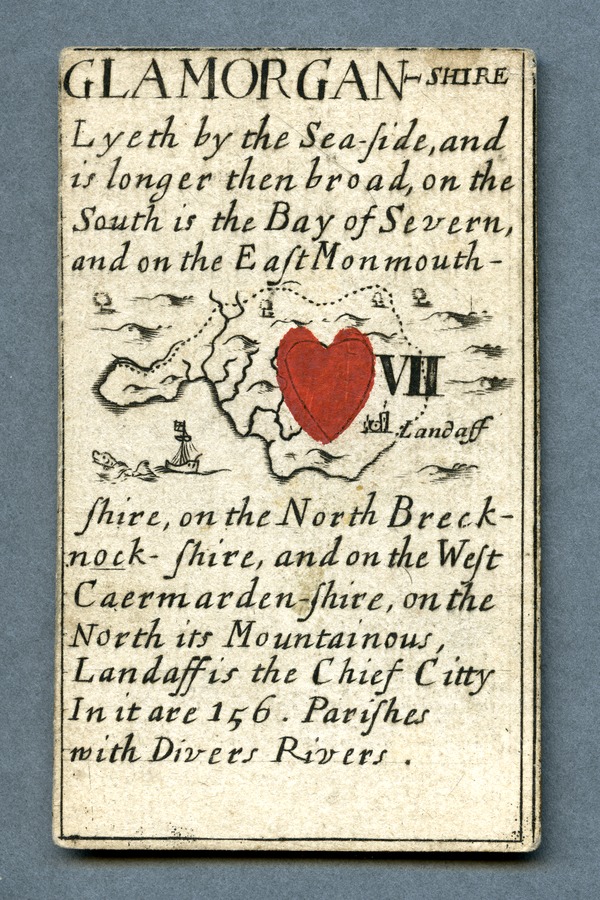 GLAMORGAN-SHIRE
Lyeth by the Sea-ſide, and
is longer then broad, on the
South is the Bay of Severn,
and on the Eaſt Monmouth-
VII
Landaff
ſhire, on the North Breck-
nock- ſhire, and on the Weſt
Caermarden-ſhire, on the
North its Mountainous,
Landaff is the Chief Citty
In it are 156. Pariſhes
with Divers Rivers .